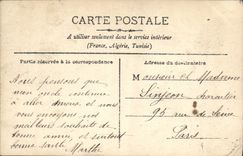 CARTE POSTALE
A utiliser seulement dans le service intérieur
(France, Algérie, Tunisie)
Partie réservée à la correspondance
Adresse du destinataire
Nous pensons que
mon oncle continue
à aller mieux, et nous
vous envoyons nos
meilleurs souhaits de
bonne année, et surtout
bonne santé
Marthe
Monsieur et Madame
95 rue de Seine
Paris